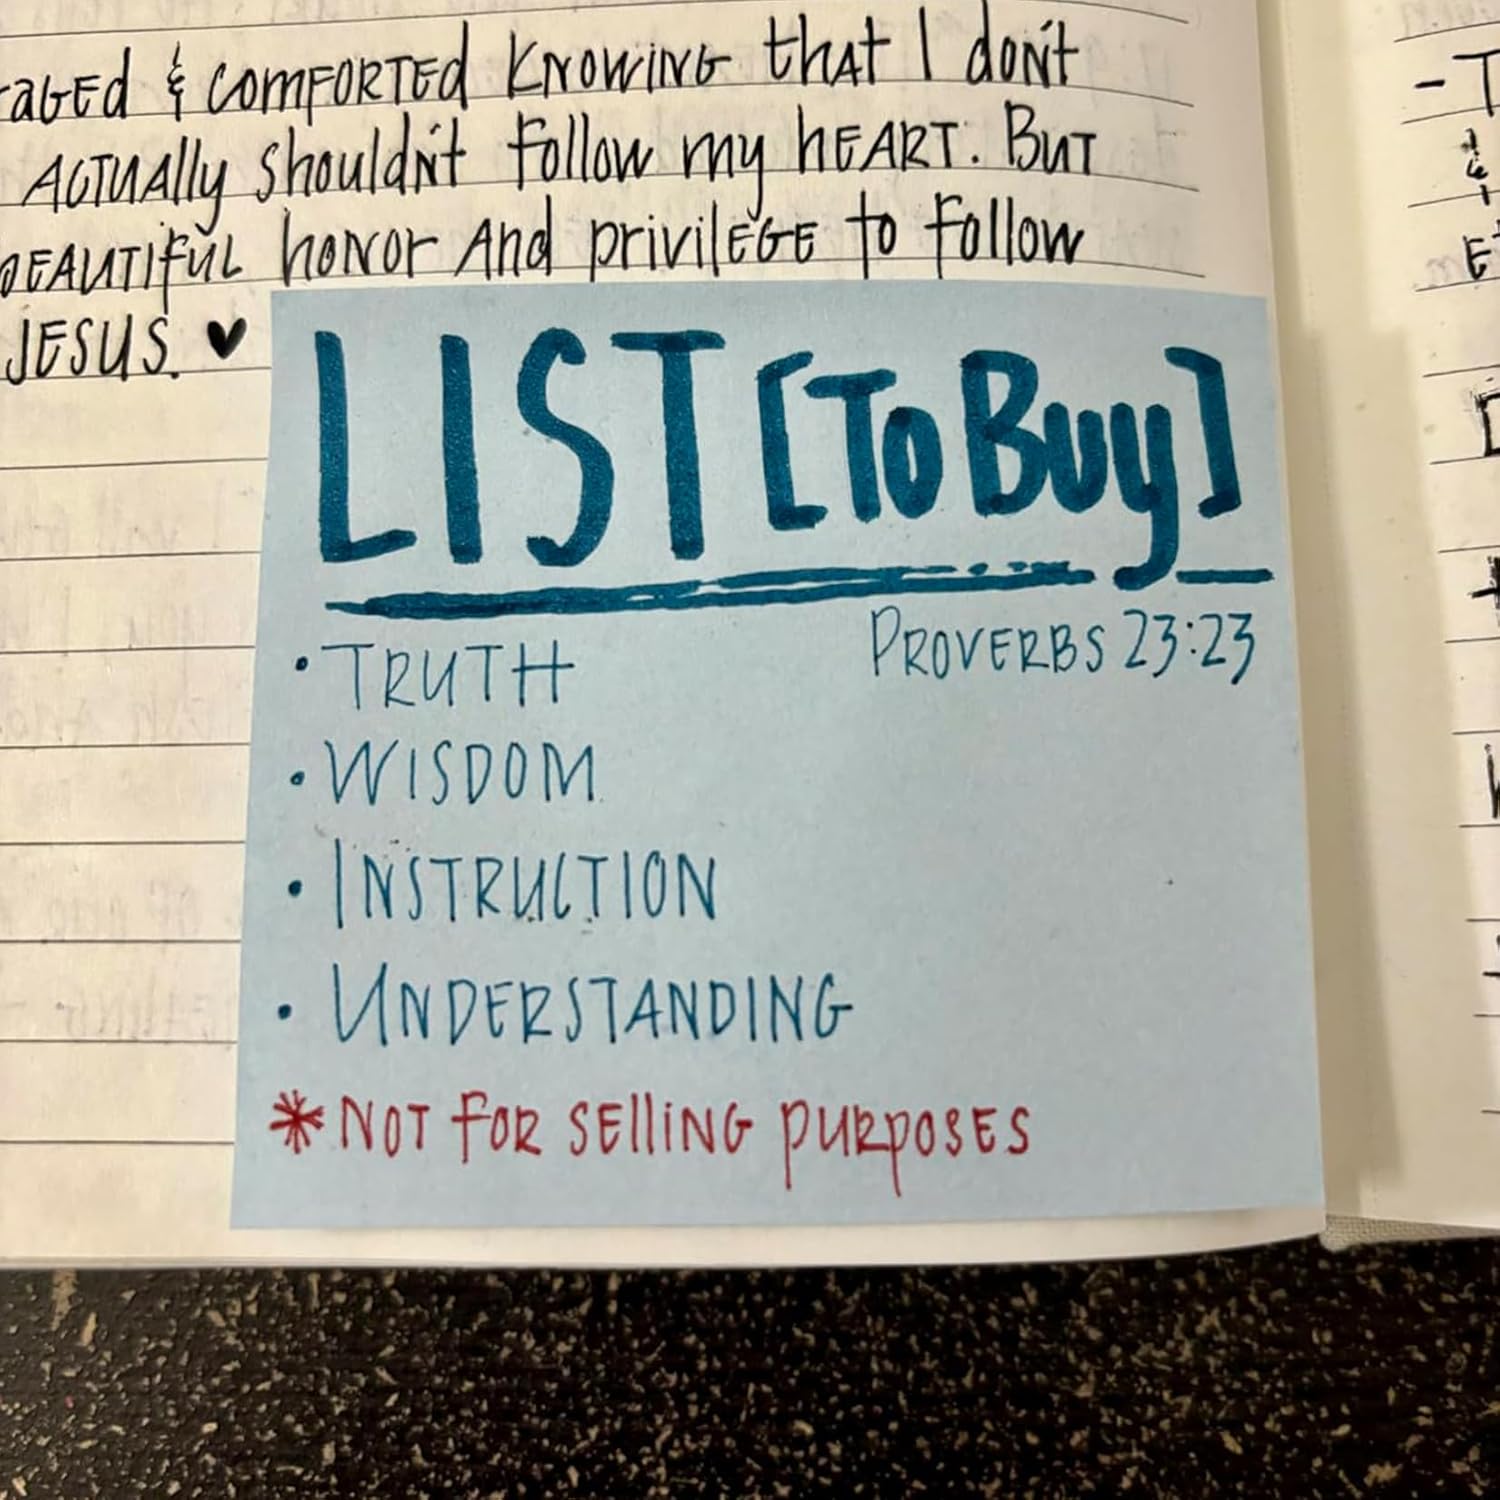 & COMFORTED KNOWING that I don't
ACTUAlly shouldn't follow my hEART. BUT
BEAUTIfUL honor And privilEGE to follow
JESUS. ♥
LIST [To Buy]
PROVERBS 23:23
• TRUTH
• WISDOM
• INSTRUCTION
• UNDERSTANDING
* NOT foR SElliNG puRposES